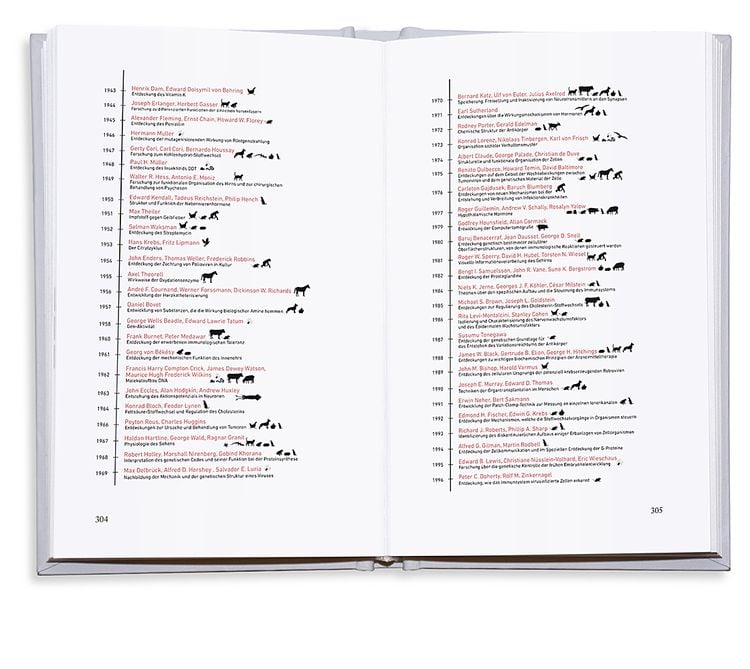 1943 Henrik Dam, Edward Doisymil von Behring
Entdeckung des Vitamin K
1944 Joseph Erlanger, Herbert Gasser
Forschung zu differenzierten Funktionen der einzelnen Nervenfasern
1945 Alexander Fleming, Ernst Chain, Howard W. Florey
Entdeckung des Penizillin
1946 Hermann Muller
Entdeckung der mutagenisierenden Wirkung von Röntgenstrahlung
1947 Gerty Cori, Carl Cori, Bernardo Houssay
Forschung zum Kohlenhydrat-Stoffwechsel
1948 Paul H. Müller
Entdeckung des Insektizids DDT
1949 Walter R. Hess, Antonio E. Moniz
Forschung zur funktionalen Organisation des Hirns und zur chirurgischen
Behandlung von Psychosen
1950 Edward Kendall, Tadeus Reichstein, Philip Hench
Struktur und Funktion der Nebennierenhormone
1951 Max Theiler
Impfstoff gegen Gelbfieber
1952 Selman Waksman
Entdeckung des Streptomycin
1953 Hans Krebs, Fritz Lipmann
Der Citratzyklus
1954 John Enders, Thomas Weller, Frederick Robbins
Entdeckung der Züchtung von Polioviren in Kultur
1955 Axel Theorell
Wirkweise der Oxydationsenzyme
1956 André F. Cournand, Werner Forssmann, Dickinson W. Richards
Entwicklung der Herzkatheterisierung
1957 Daniel Bovet
Entwicklung von Substanzen, die die Wirkung biologischer Amine hemmen
1958 George Wells Beadle, Edward Lawrie Tatum
Gen-Aktivität
1960 Frank Burnet, Peter Medawar
Entdeckung der erworbenen immunologischen Toleranz
1961 Georg von Békésy
Entdeckung der mechanischen Funktion des Innenohrs
1962 Francis Harry Compton Crick, James Dewey Watson,
Maurice Hugh Frederick Wilkins
Molekülaufbau DNA
1963 John Eccles, Alan Hodgkin, Andrew Huxley
Entstehung des Aktionspotenzials in Neuronen
1964 Konrad Bloch, Feodor Lynen
Fettsäure-Stoffwechsel und Regulation des Cholesterins
1966 Peyton Rous, Charles Huggins
Entdeckungen zur Ursache und Behandlung von Tumoren
1967 Haldan Hartline, George Wald, Ragnar Granit
Physiologie des Sehens
1968 Robert Holley, Marshall Nirenberg, Gobind Khorana
Interpretation des genetischen Codes und seiner Funktion bei der Proteinsynthese
1969 Max Delbrück, Alfred D. Hershey, Salvador E. Luria
Nachbildung der Mechanik und der genetischen Struktur eines Viruses
304
1970 Bernard Katz, Ulf von Euler, Julius Axelrod
Speicherung, Freisetzung und Inaktivierung von Neurotransmittern an den Synapsen
1971 Earl Sutherland
Entdeckungen über die Wirkungsmechanismen von Hormonen
1972 Rodney Porter, Gerald Edelman
Chemische Struktur der Antikörper
1973 Konrad Lorenz, Nikolaas Tinbergen, Karl von Frisch
Organisation sozialer Verhaltensmuster
1974 Albert Claude, George Palade, Christian de Duve
Strukturelle und funktionale Organisation der Zellen
1975 Renato Dulbecco, Howard Temin, David Baltimore
Entdeckungen auf dem Gebiet der Wechselwirkungen zwischen
Tumorviren und dem genetischen Material der Zelle
1976 Carleton Gajdusek, Baruch Blumberg
Entdeckungen von neuen Mechanismen bei der
Entstehung und Verbreitung von Infektionskrankheiten
1977 Roger Guillemin, Andrew V. Schally, Rosalyn Yalow
Hypothalamische Hormone
1979 Godfrey Hounsfield, Allan Cormack
Entwicklung der Computertomografie
1980 Baruj Benacerraf, Jean Dausset, George D. Snell
Entdeckung genetisch bestimmter zellulärer
Oberflächenstrukturen, von denen immunologische Reaktionen gesteuert werden
1981 Roger W. Sperry, David H. Hubel, Torsten N. Wiesel
Visuelle Informationsverarbeitung des Gehirns
1982 Bengt I. Samuelsson, John R. Vane, Sune K. Bergstrom
Entdeckung der Prostaglandine
1984 Niels K. Jerne, Georges J. F. Köhler, César Milstein
Theorien über den spezifischen Aufbau und die Steuerung des Immunsystems
1985 Michael S. Brown, Joseph L. Goldstein
Entdeckungen zur Regulation des Cholesterin-Stoffwechsels
1986 Rita Levi-Montalcini, Stanley Cohen
Isolierung und Charakterisierung des Nervenwachstumsfaktors
und des Epidermalen Wachstumsfaktors
1987 Susumu Tonegawa
Entdeckung der genetischen Grundlage für
das Entstehen des Variationsreichtums der Antikörper
1988 James W. Black, Gertrude B. Elion, George H. Hitchings
Entdeckungen zu wichtigen biochemischen Prinzipien der Arzneimitteltherapie
1989 John M. Bishop, Harold Varmus
Entdeckung des zellulären Ursprungs der potenziell krebserzeugenden Retroviren
1990 Joseph E. Murray, Edward D. Thomas
Techniken der Organtransplantation am Menschen
1991 Erwin Neher, Bert Sakmann
Entwicklung der Patch-Clamp-Technik zur Messung an einzelnen Ionenkanälen
1992 Edmond H. Fischer, Edwin G. Krebs
Entdeckung der Mechanismen, welche die Stoffwechselvorgänge in Organismen steuern
1993 Richard J. Roberts, Phillip A. Sharp
Identifizierung des diskontinuierlichen Aufbaus einiger Erbanlagen von Zellorganismen
1994 Alfred G. Gilman, Martin Rodbell
Entdeckung der Zellkommunikation und im Speziellen der Entdeckung der G-Proteine
1995 Edward B. Lewis, Christiane Nüsslein-Volhard, Eric Wieschaus
Forschung über die genetische Kontrolle der frühen Embryonalentwicklung
1996 Peter C. Doherty, Rolf M. Zinkernagel
Entdeckung, wie das Immunsystem virusinfizierte Zellen erkennt
305